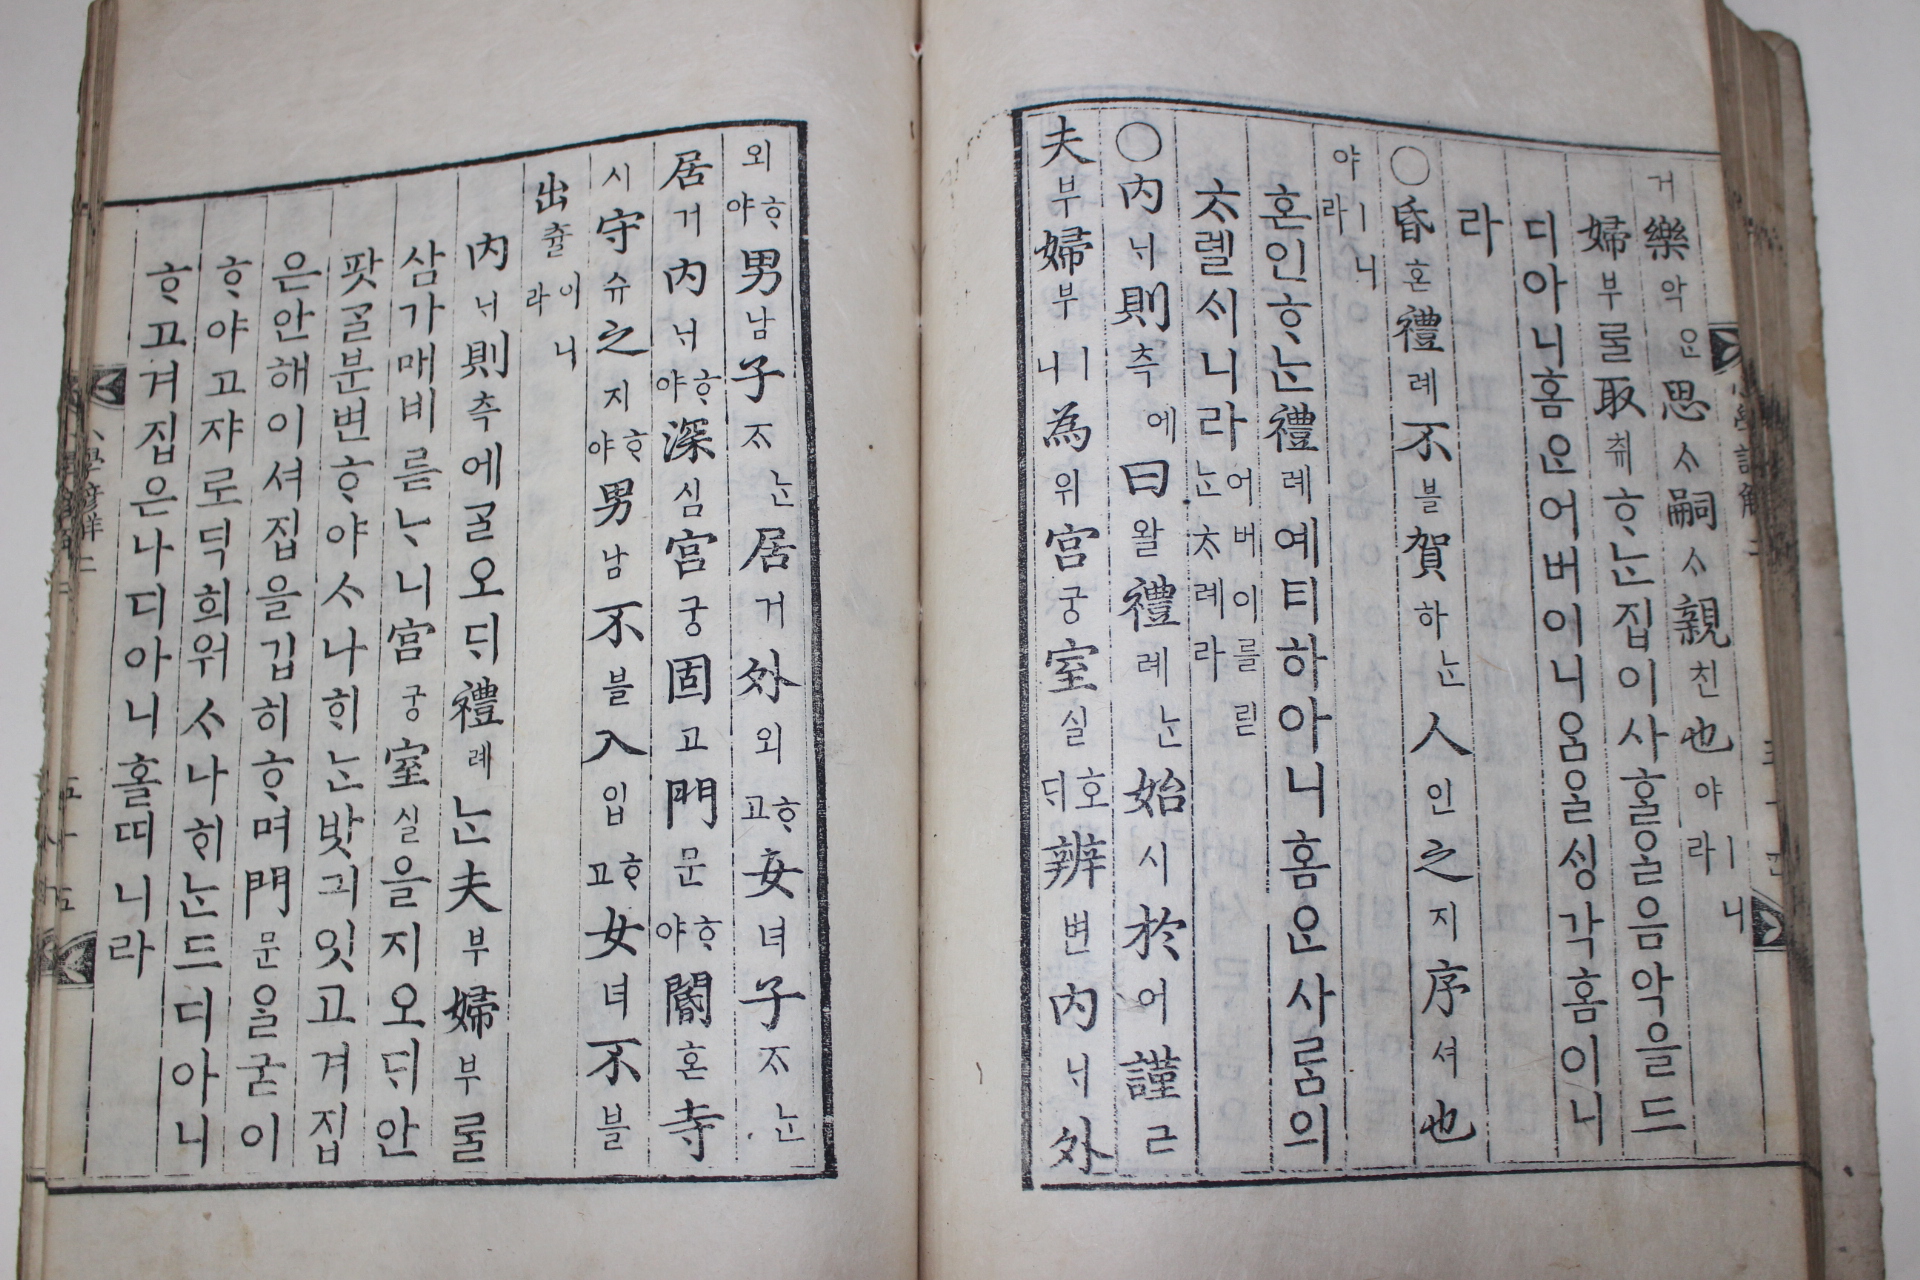 거樂악ᄋᆞᆫ思ᄉᆞ嗣ᄉᆞ親친也야ㅣ니라
婦부ᄅᆞᆯ取ᄎᆔᄒᆞᄂᆞᆫ집이사ᄒᆞᆯᄋᆞᆯ음악을드
디아니홈ᄋᆞᆫ어버이니ᄋᆞᆷᄋᆞᆯᄉᆡᆼ각홈이니
라
○昏혼禮례不블賀하ᄂᆞᆫ人인之지序셔也
야ㅣ니라
혼인ᄒᆞᄂᆞᆫ禮례예티하아니홈ᄋᆞᆫ사ᄅᆞᆷ의
ᄎᆞ롈ᄉᆡ니라어버이를닏ᄂᆞᆫᄎᆞ례라
○內ᄂᆡ則측에曰왈禮례ᄂᆞᆫ始시於어謹근
夫부婦부ㅣ니為위宮궁室실호ᄃᆡ辨변內ᄂᆡ外
외ᄒᆞ야男남子ᄌᆞᄂᆞᆫ居거外외ᄒᆞ고女녀子ᄌᆞᄂᆞᆫ
居거內ᄂᆡᄒᆞ야深심宮궁固고門문ᄒᆞ야閽혼寺
시守슈之지ᄒᆞ야男남不블入입ᄒᆞ고女녀不블
出츌이니라
內ᄂᆡ則측에ᄀᆞᆯ오ᄃᆡ禮례ᄂᆞᆫ夫부婦부ᄅᆞᆯ
삼가매비륻ᄂᆞ니宮궁室실을지오ᄃᆡ안
팟ᄀᆞᆯ분변ᄒᆞ야ᄉᆞ나ᄒᆡᄂᆞᆫ밧긔잇고겨집
은안해이셔집을깁히ᄒᆞ며門문ᄋᆞᆯ굳이
ᄒᆞ야고쟈로딕희워ᄉᆞ나ᄒᆡᄂᆞᆫ드디아니
ᄒᆞ고겨집은나디아니홀띠니라
小學諺解二 五十五